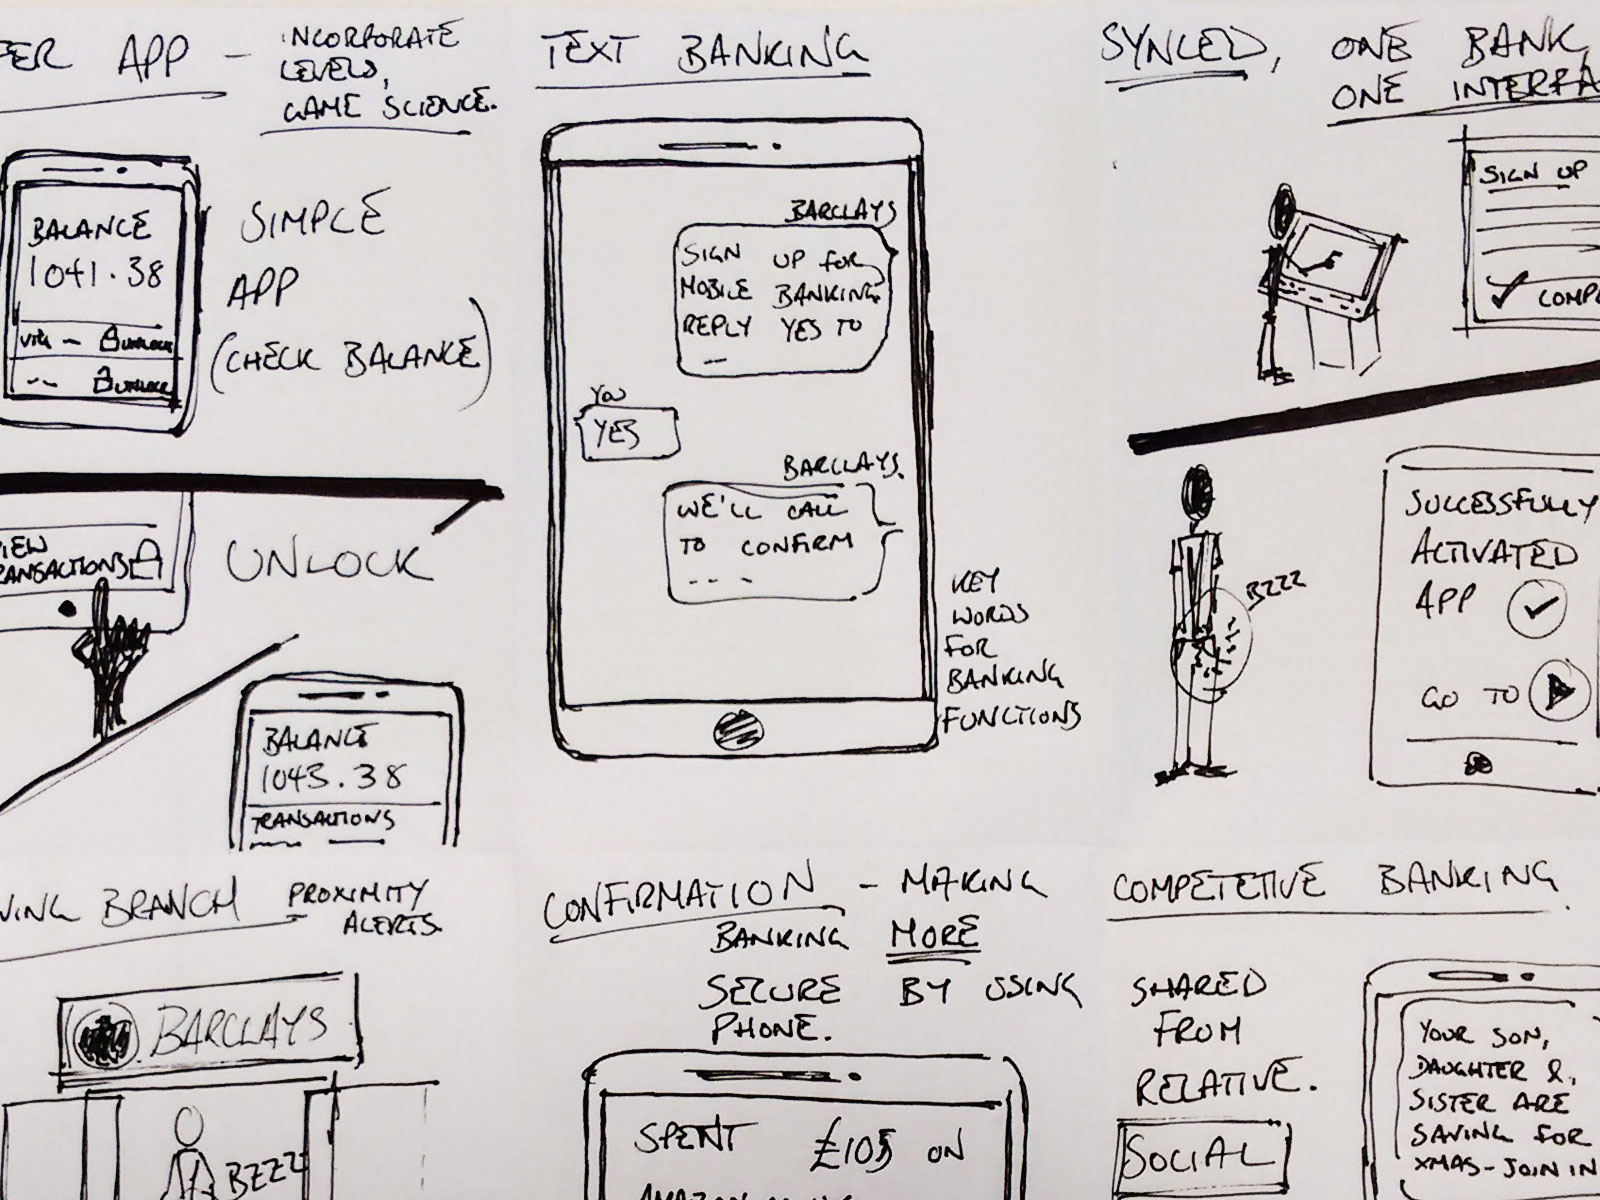 PER APP - INCORPORATE
LEVELS,
GAME SCIENCE.
BALANCE
1041.38
UNLOCK
UNLOCK
SIMPLE
APP
(CHECK BALANCE)
VIEW
TRANSACTIONS
UNLOCK
BALANCE
1043.38
TRANSACTIONS
TEXT BANKING
BARCLAYS
SIGN UP FOR
MOBILE BANKING.
REPLY YES TO
YOU
YES
BARCLAYS.
WE'LL CALL
TO CONFIRM
KEY
WORDS
FOR
BANKING
FUNCTIONS
SYNCED, ONE BANK,
ONE INTERFA
SIGN UP
COMP
BZZZ
SUCCESSFULLY
ACTIVATED
APP
GO TO
VING BRANCH PROXIMITY
ALERTS.
BARCLAYS
BZZZ
CONFIRMATION - MAKING
BANKING MORE
SECURE BY USING
PHONE.
SPENT £105 ON
AMAZON
COMPETETIVE BANKING.
SHARED
FROM
RELATIVE.
SOCIAL
YOUR SON,
DAUGHTER &
SISTER ARE
SAVING FOR
XMAS-JOIN IN